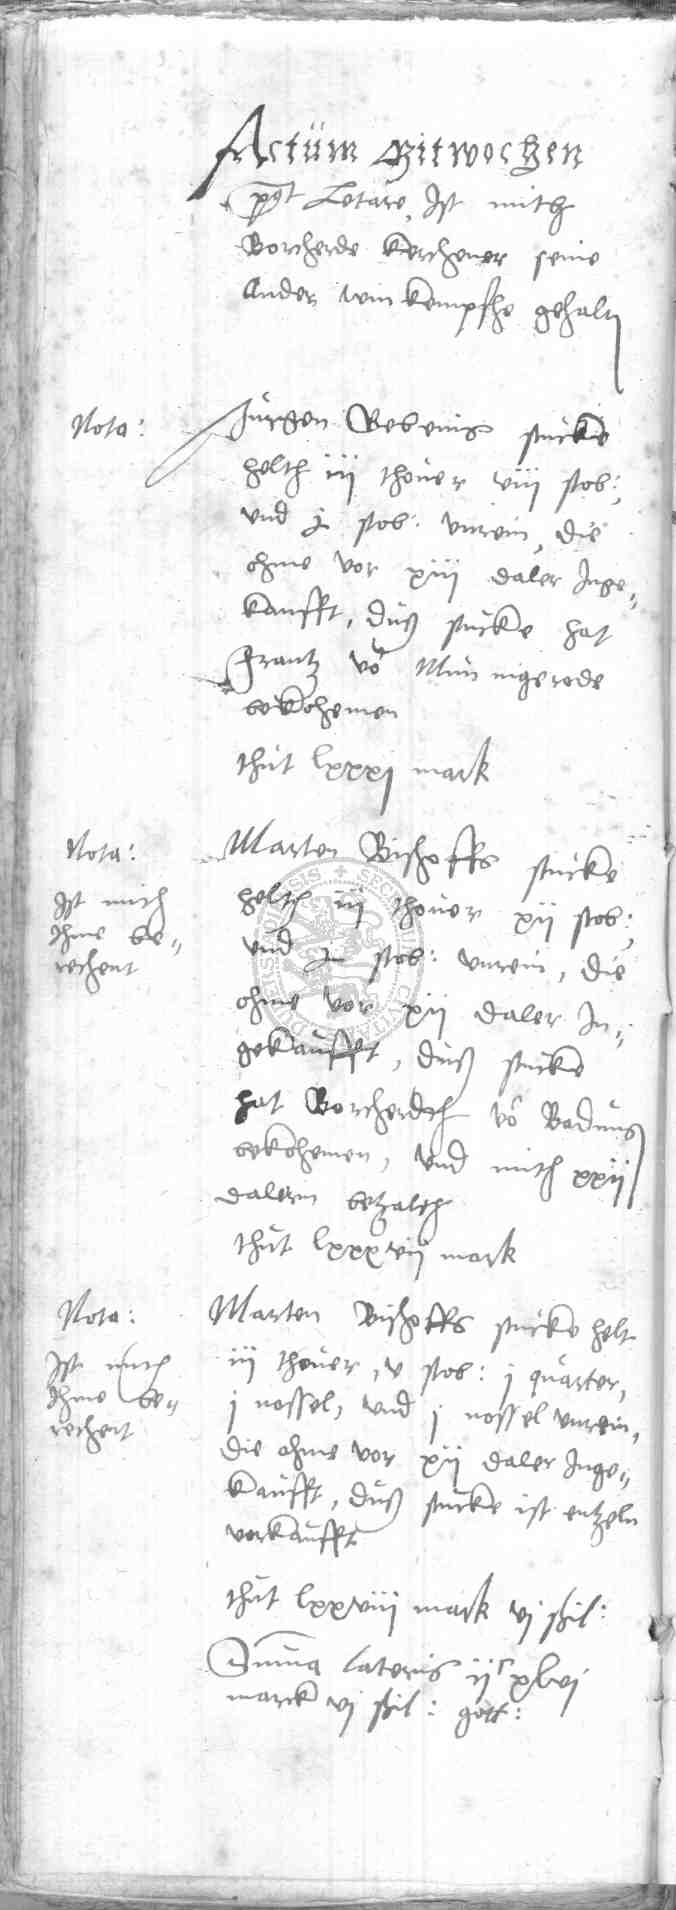 Actum Mitwochen
post Letare, Ist mith
Borcherde Kerchener seine
Ander wein kempfhe gehaltn
Nota:
Jurgen Bebenns stucke
helth iij thover viij stob:,
vnd j stob: vnrein, die
ohme vor xiij daler Inge-
kaufft, duß stucke hat
Frantz vo Mun nigerode
bekohemen
thut lxxxj mark
Nota:
Ist mith
Ihme be-
rechent
Marten Bischoffs stucke
helth iij thover xij stob:,
vnd j stob: vnrein, die
ohme vor xij daler In-
gekaufft, duß stucke
hat Borcherdth vo Badung
bekohemen, vnd mith xxij
dalern betzalth
thut lxxxvij mark
Nota:
Ist mith
Ihme be-
rechent
Marten Bischoffs stucke helt
iij thover, v stob: j quarter,
j nossel, vnd j nossel vnrein,
die ohme vor xij daler Inge-
kaufft, duß stucke ist entzeln
vorkaufft
thut lxxviij mark vj shil:
Summa lateris ijc xlvj
marck vj shil: gott: